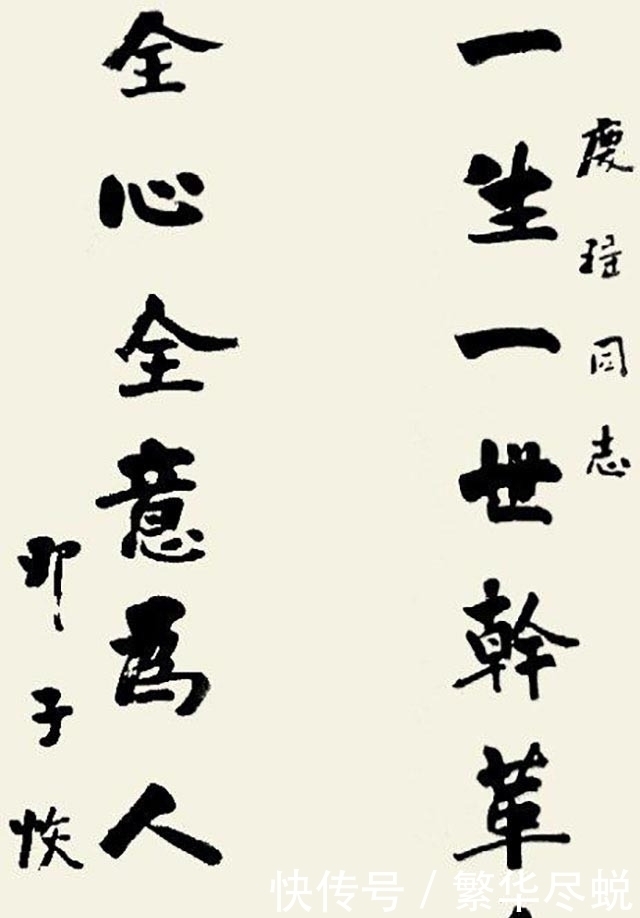 慶同志
一生一世幹革
全心全意為人
邓子恢
快传号 / 繁华尽蜕